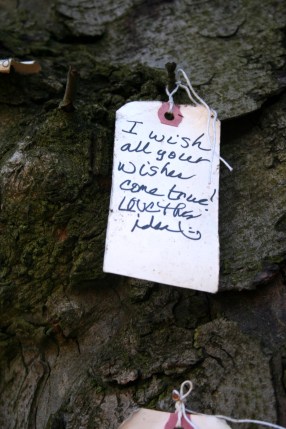 I wish
all your
wishes
come true!
LOVE this
idea